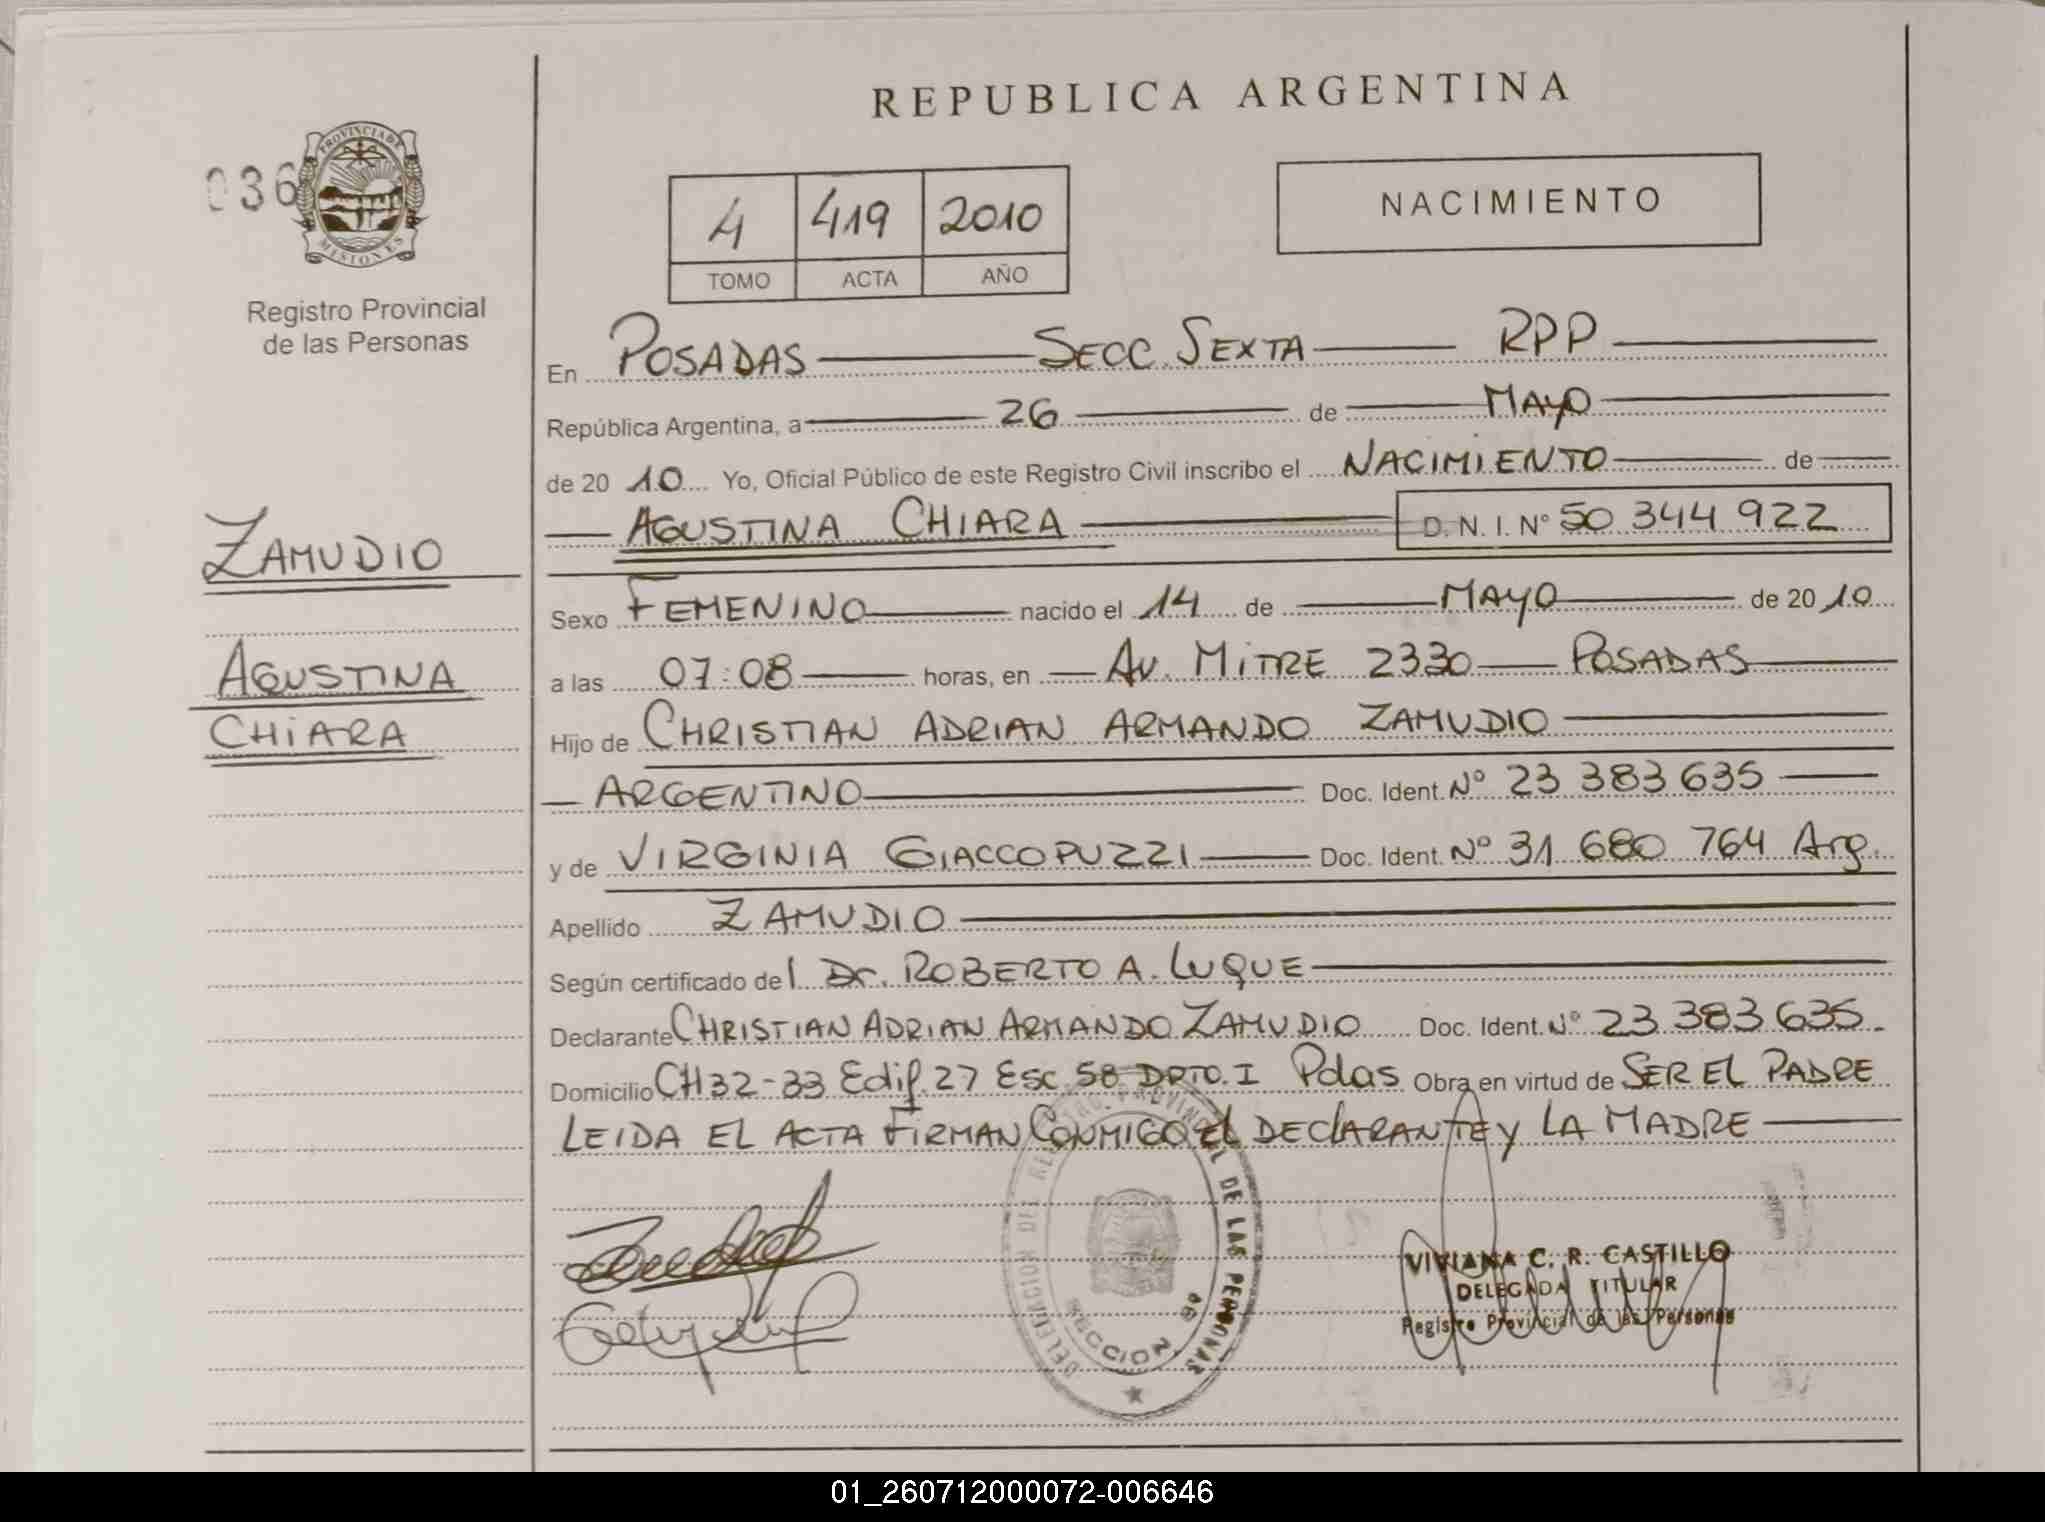 REPUBLICA ARGENTINA
036
PROVINCIA DE
MISIONES
Registro Provincial
de las Personas
4 419 2010
TOMO ACTA AÑO
NACIMIENTO
En POSADAS SECC. SEXTA RPP
República Argentina, a 26 de MAYO
de 20 10 Yo, Oficial Público de este Registro Civil inscribo el NACIMIENTO de
AGUSTINA CHIARA D.N.I. Nº 50 344 922
ZAMUDIO
AGUSTINA
CHIARA
Sexo FEMENINO nacido el 14 de MAYO de 20 10
a las 07:08 horas, en AV. MITRE 2330 POSADAS
Hijo de CHRISTIAN ADRIAN ARMANDO ZAMUDIO
ARGENTINO Doc. Ident. Nº 23 383 635
y de VIRGINIA GIACCOPUZZI Doc. Ident. Nº 31 680 764 Arg.
Apellido ZAMUDIO
Según certificado del Dr. ROBERTO A. LUQUE
Declarante CHRISTIAN ADRIAN ARMANDO ZAMUDIO Doc. Ident. Nº 23 383 635
Domicilio CH 32-33 Edif. 27 Esc. 58 DPTO. I Pdas Obra en virtud de SER EL PADRE
LEIDA EL ACTA FIRMAN CONMIGO El DEClARANTE y LA MADRE
DELEGACION DEL REGISTRO PROVINCIAL DE LAS PERSONAS
SECCION 6ª
VIVIANA C. R. CASTILLO
DELEGADA TITULAR
Registro Provincial de las Personas
01_260712000072-006646